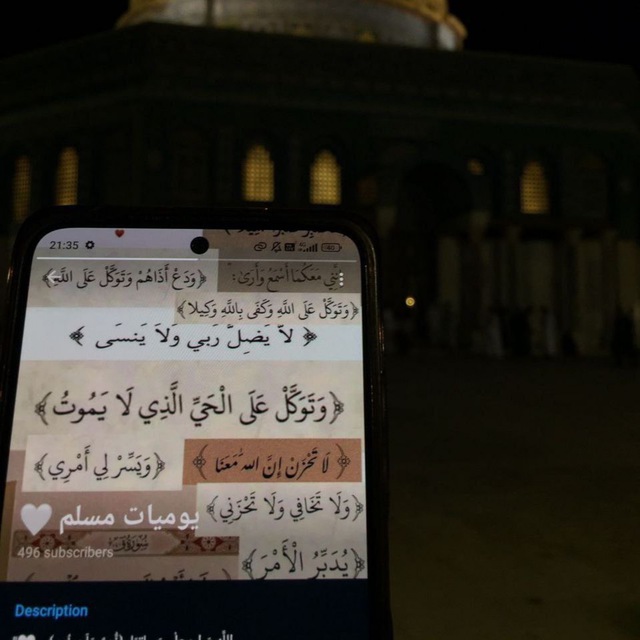 21:35
إنني معكما أسمع وأرى:
﴿وَدَعْ أَذَاهُمْ وَتَوَكَّلْ عَلَى اللَّهِ﴾
﴿وَتَوَكَّلْ عَلَى اللَّهِ وَكَفَى بِاللَّهِ وَكِيلًا﴾
﴿لَا يَضِلُّ رَبِّي وَلَا يَنسَى﴾
﴿وَتَوَكَّلْ عَلَى الْحَيِّ الَّذِي لَا يَمُوتُ﴾
﴿لَا تَحْزَنْ إِنَّ اللَّهَ مَعَنَا﴾
﴿وَيَسِّرْ لِي أَمْرِي﴾
﴿وَلَا تَخَافِي وَلَا تَحْزَنِي﴾
يوميات مسلم
496 subscribers
﴿يُدَبِّرُ الْأَمْرَ﴾
Description